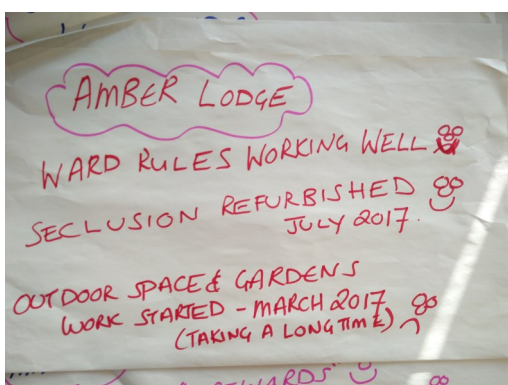 AMBER LODGE
WARD RULES WORKING WELL
SECLUSION REFURBISHED
JULY 2017.
OUTDOOR SPACE & GARDENS
WORK STARTED - MARCH 2017
(TAKING A LONG TIME)